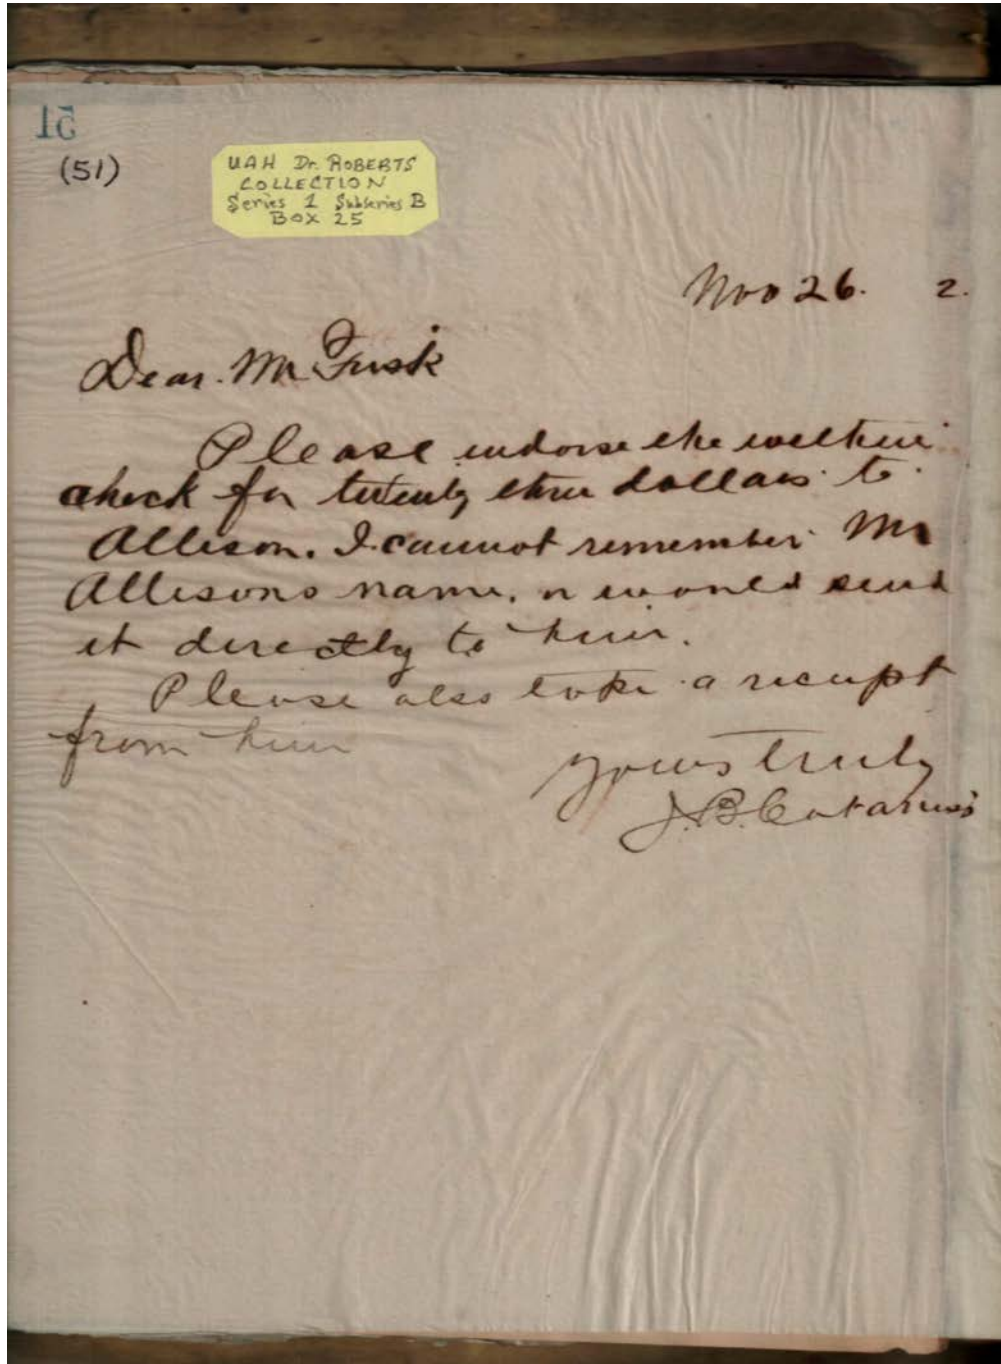 51
(51)
UAH Dr. ROBERTS
COLLECTION
Series 1 Subseries B
BOX 25
Nov 26. 2.
Dear. Mr Fusk
Please endorse the within
check for twenty three dollars to
Allison. I cannot remember Mr
Allisons name. or would send
it directly to him.
Please also take a receipt
from him
Yours truly
J. B.